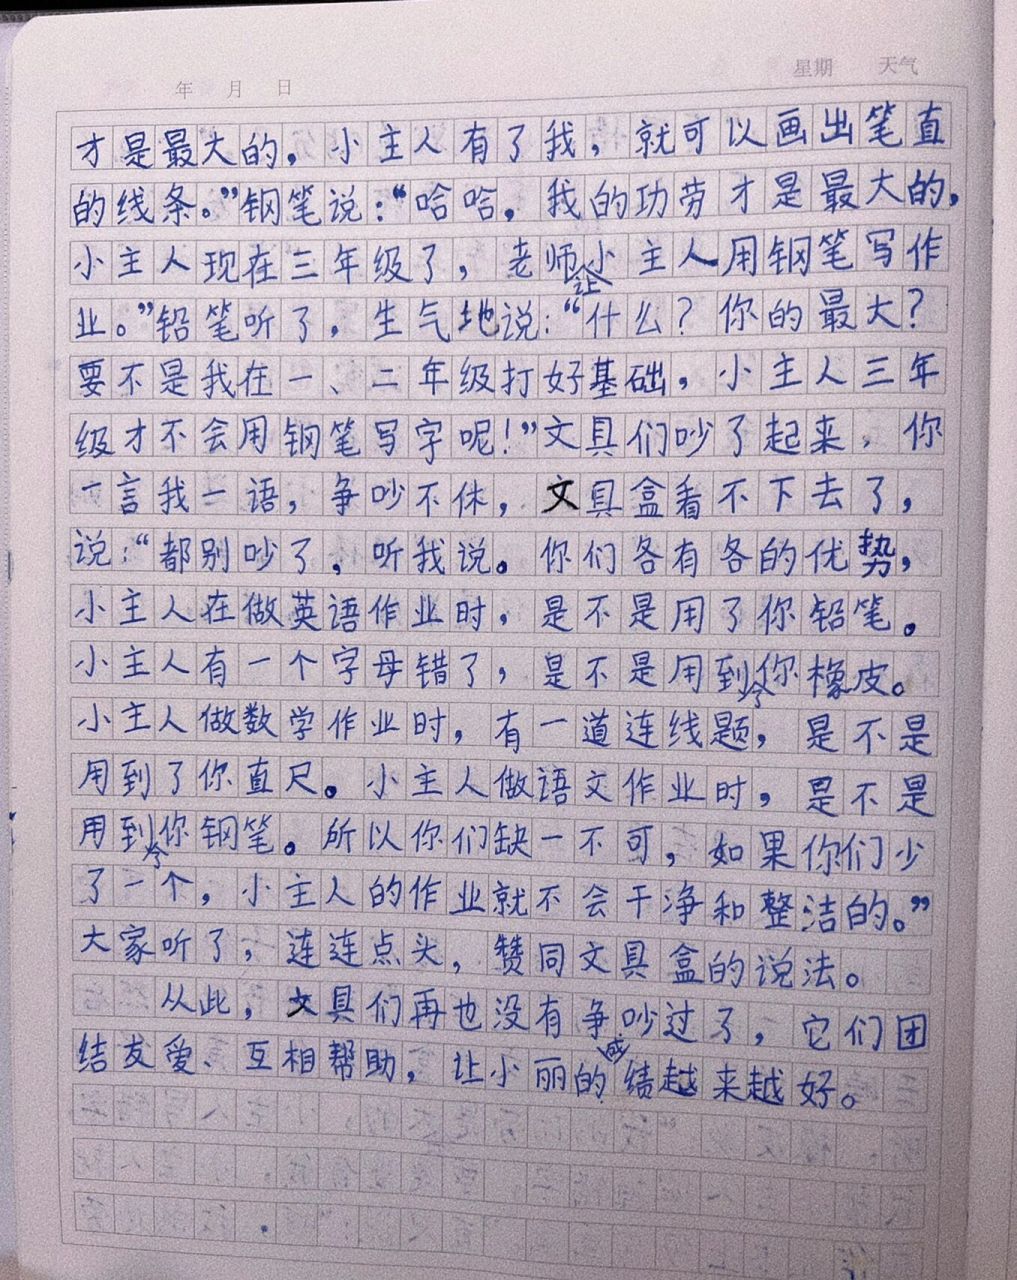 年 月 日 星期 天气
才是最大的，小主人有了我，就可以画出笔直
的线条。”钢笔说：“哈哈，我的功劳才是最大的，
小主人现在三年级了，老师让小主人用钢笔写作
业。”铅笔听了，生气地说：“什么？你的最大？
要不是我在一、二年级打好基础，小主人三年
级才不会用钢笔写字呢！”文具们吵了起来，你
一言我一语，争吵不休，文具盒看不下去了，
说：“都别吵了，听我说。你们各有各的优势，
小主人在做英语作业时，是不是用了你铅笔。
小主人有一个字母错了，是不是用到了你橡皮。
小主人做数学作业时，有一道连线题，是不是
用到了你直尺。小主人做语文作业时，是不是
用到了你钢笔。所以你们缺一不可，如果你们少
了一个，小主人的作业就不会干净和整洁的。”
大家听了，连连点头，赞同文具盒的说法。
从此，文具们再也没有争吵过了，它们团
结友爱、互相帮助，让小丽的成绩越来越好。